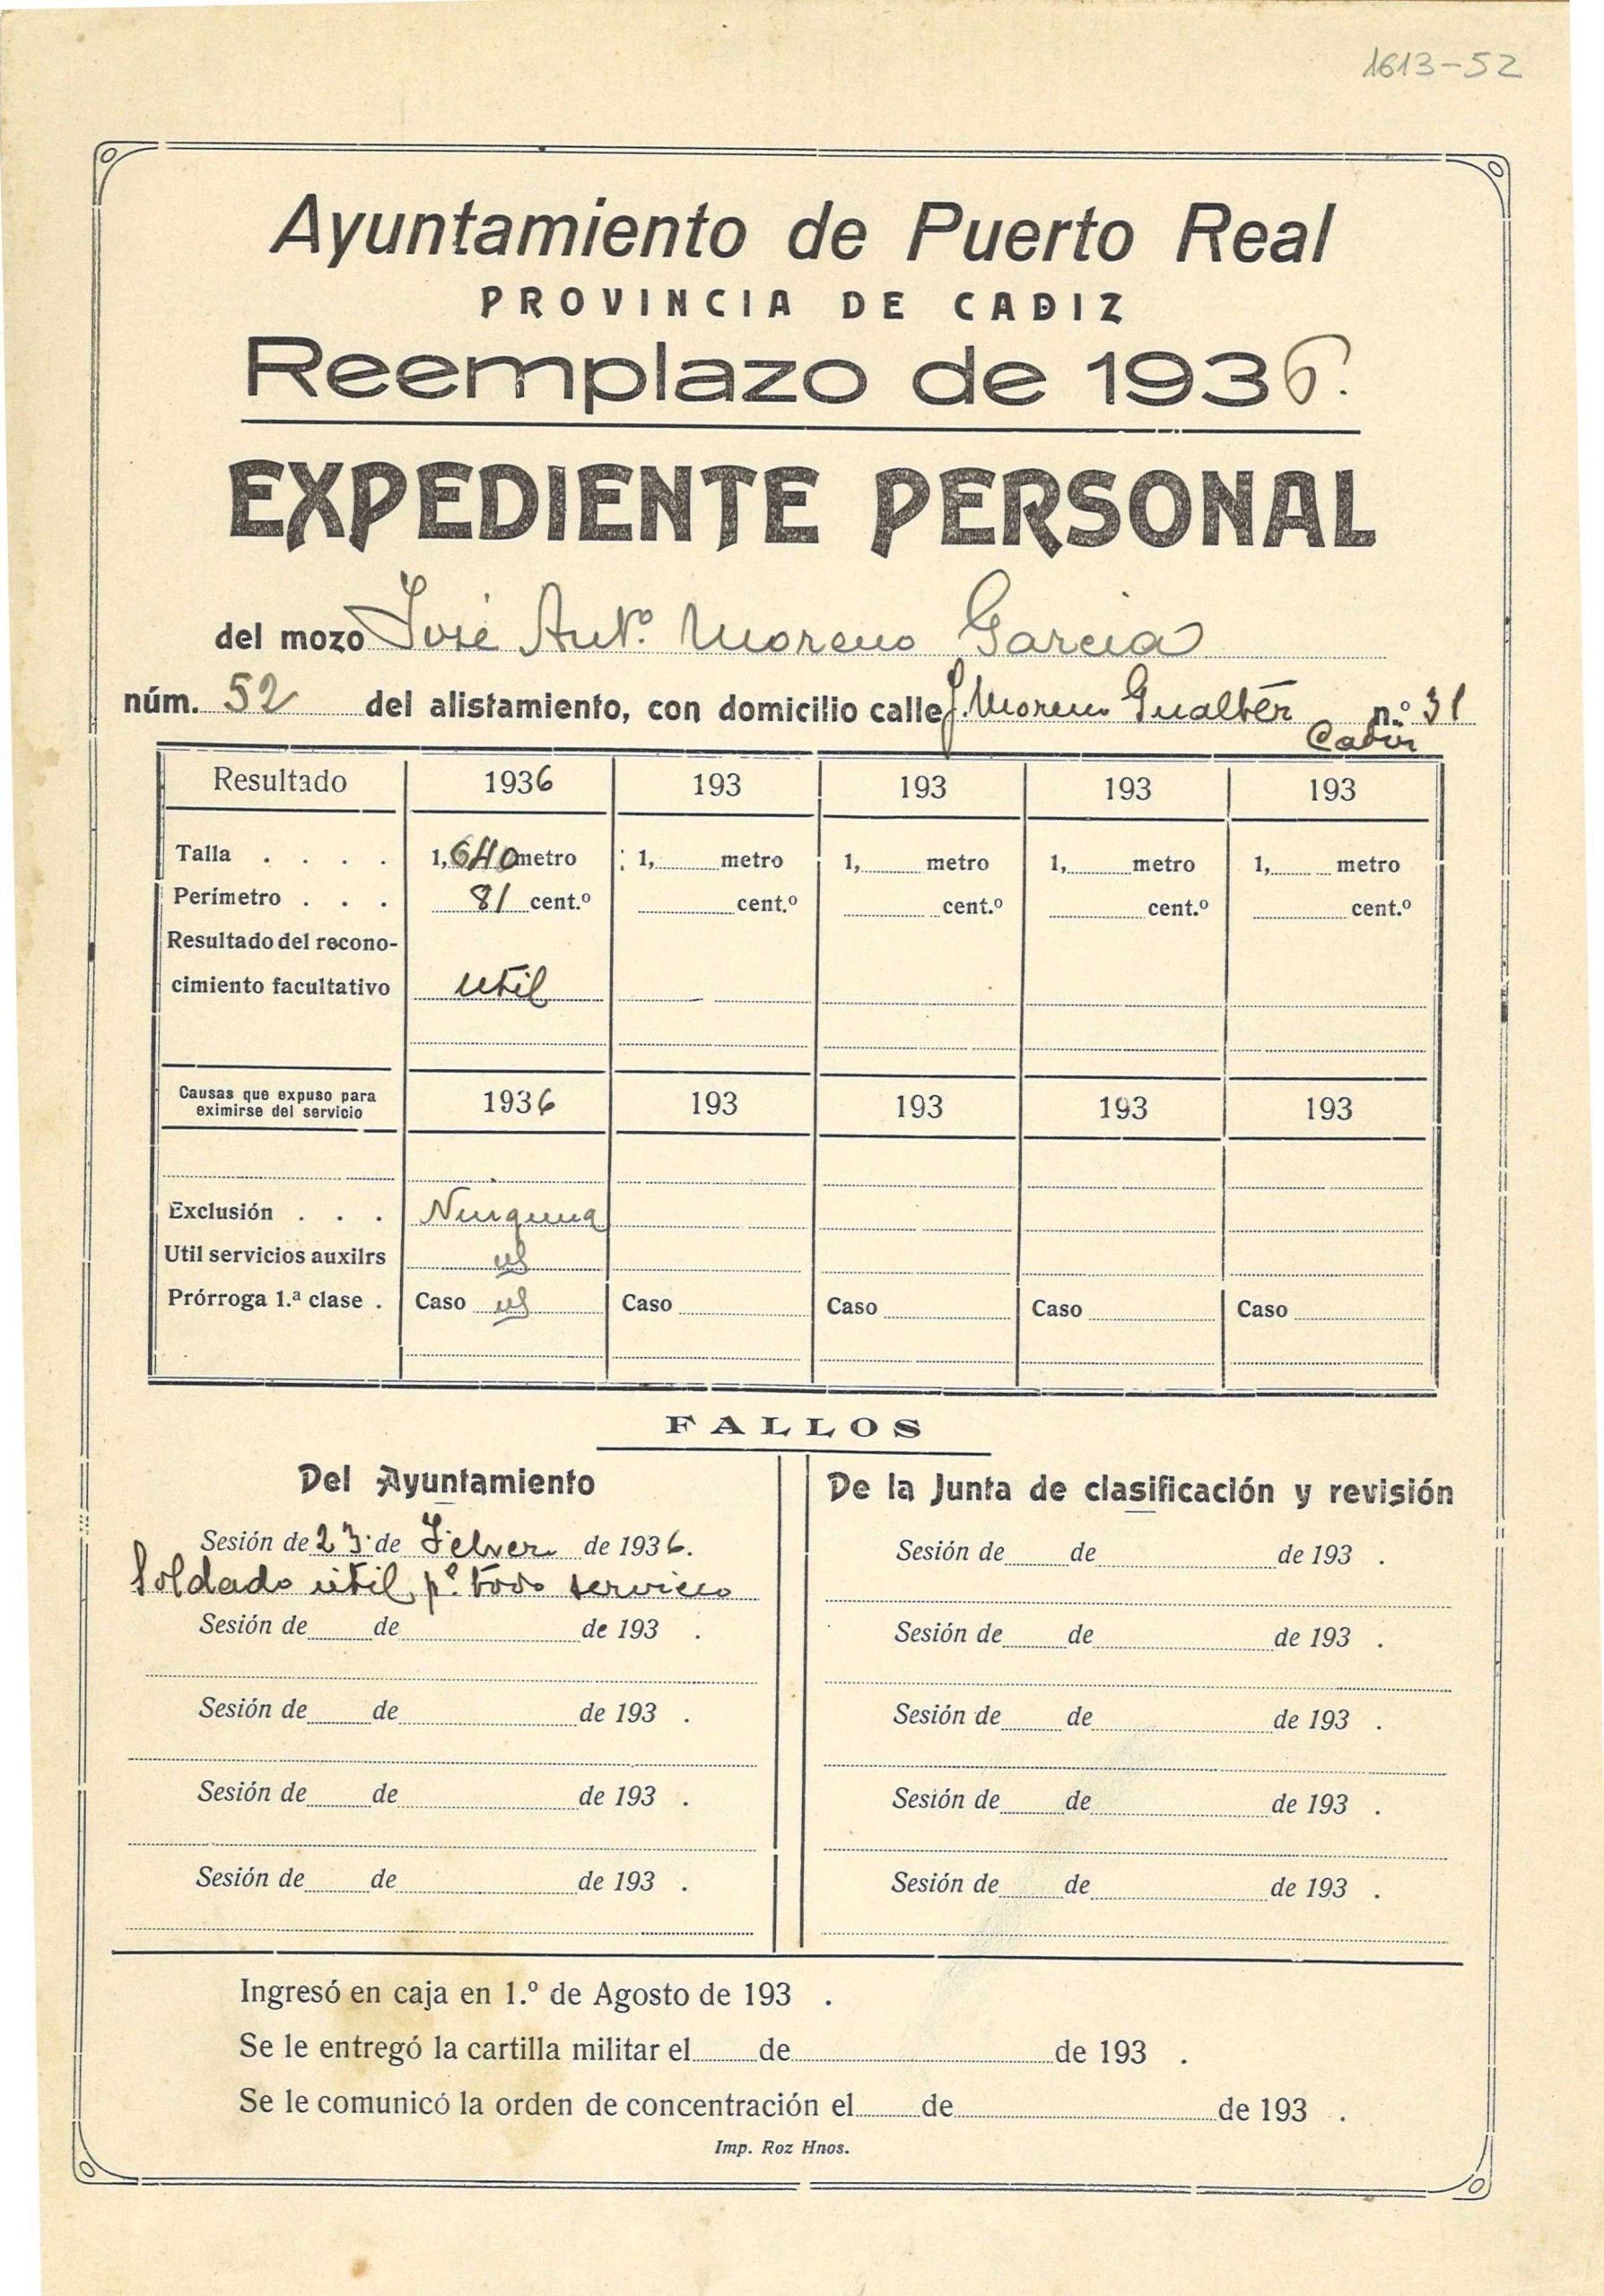 1613-52
Ayuntamiento de Puerto Real
PROVINCIA DE CADIZ
Reemplazo de 1936.
EXPEDIENTE PERSONAL
del mozo José Antº. Moreno Garcia
núm. 52 del alistamiento, con domicilio calle J. Moreno Gualter n.º 31
Cadiz
Resultado 1936 193 193 193 193
Talla . . . . 1,640 metro 1, metro 1, metro 1, metro 1, metro
Perímetro . . . 81 cent.º cent.º cent.º cent.º cent.º
Resultado del recono-
cimiento facultativo util
Causas que expuso para
eximirse del servicio 1936 193 193 193 193
Exclusión . . . Ninguna
Util servicios auxilrs
Prórroga 1.ª clase . Caso Caso Caso Caso Caso
FALLOS
Del Ayuntamiento De la Junta de clasificación y revisión
Sesión de 23 de Febrero de 1936. Sesión de de de 193 .
Soldado útil pª. todo servicio
Sesión de de de 193 . Sesión de de de 193 .
Sesión de de de 193 . Sesión de de de 193 .
Sesión de de de 193 . Sesión de de de 193 .
Sesión de de de 193 . Sesión de de de 193 .
Ingresó en caja en 1.º de Agosto de 193 .
Se le entregó la cartilla militar el de de 193 .
Se le comunicó la orden de concentración el de de 193 .
Imp. Roz Hnos.